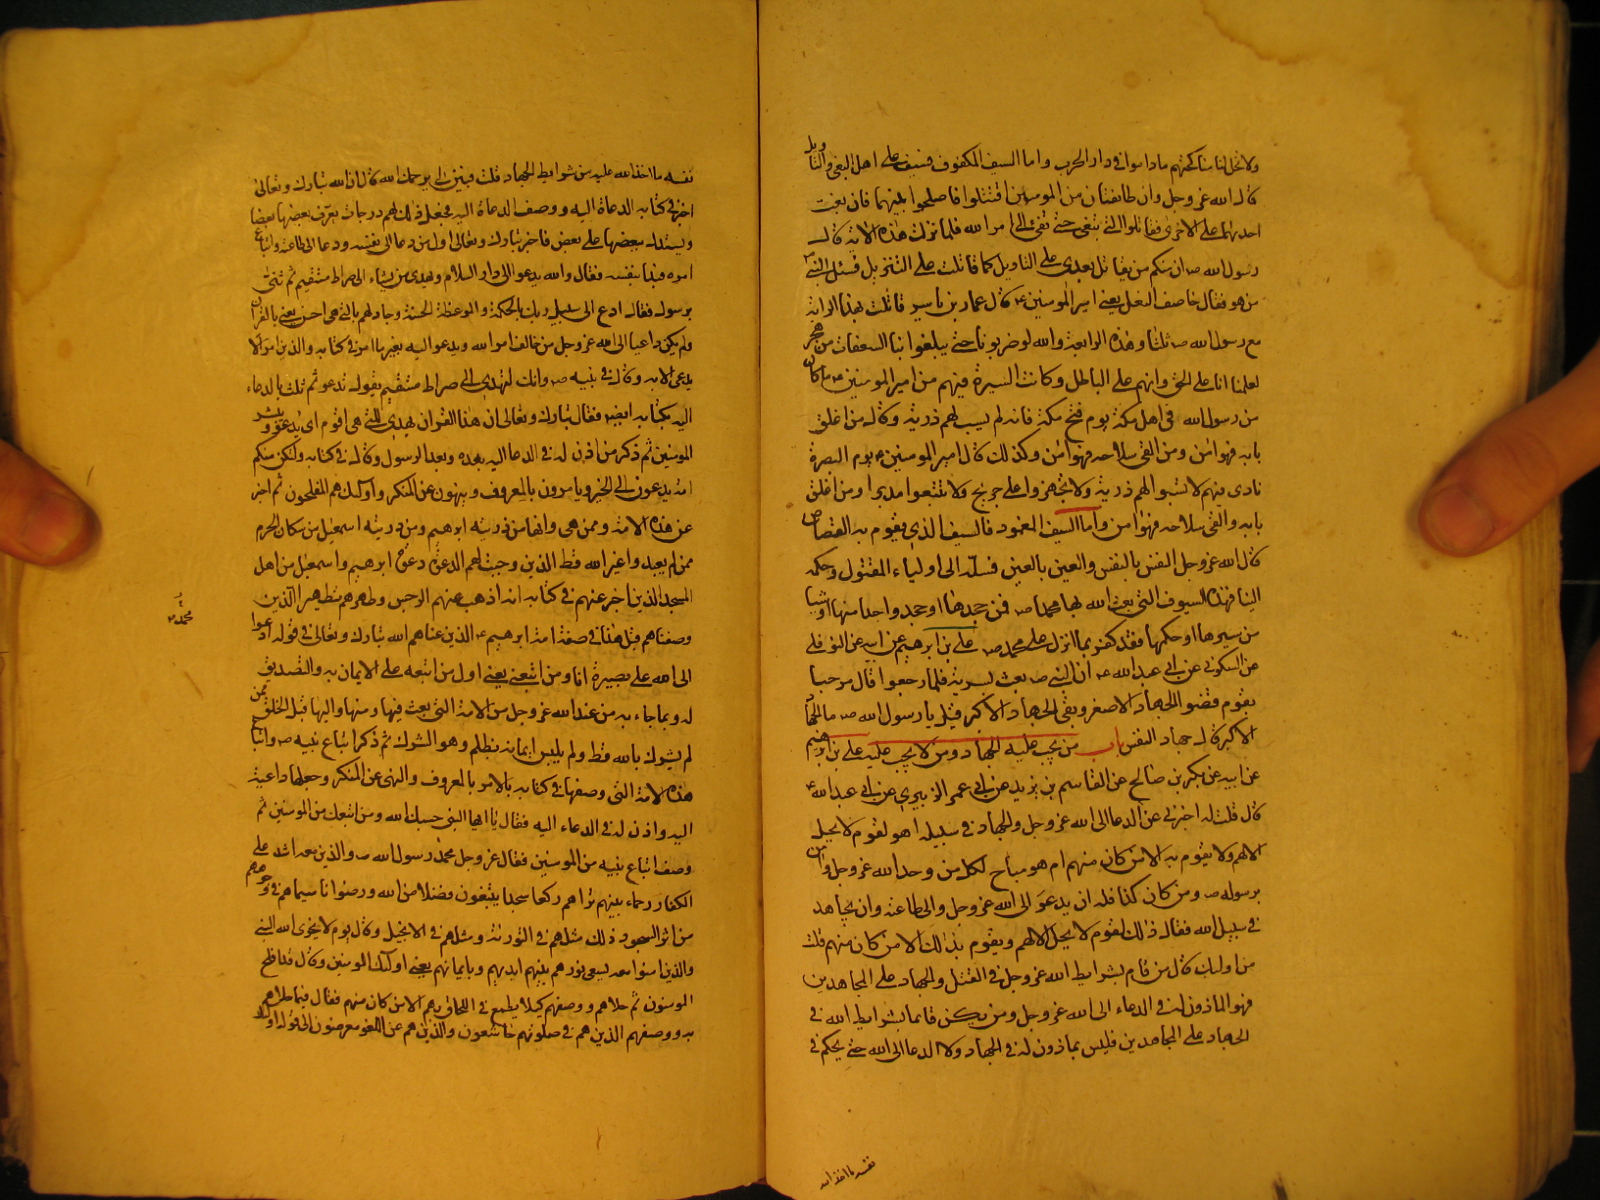 ولا تحل لنا مناكحتهم ماداموا في دار الحرب واما السيف المكفوف فسيف على اهل البغي والتاويل
قال الله عز وجل وان طائفتان من المومنين اقتتلوا فاصلحوا بينهما فان بغت
احديهما على الاخرى فقاتلوا التي تبغي حتى تفيء الى امر الله فلما نزلت هذه الاية قال
رسول الله ص ان منكم من يقاتل بعدي على التاويل كما قاتلت على التنزيل فسئل النبي ص
من هو فقال خاصف النعل يعني امير المومنين ع قال عمار بن ياسر قاتلت بهذا الراية
مع رسول الله ص ثلثا وهذه الرابعة والله لو ضربونا حتى يبلغوا بنا السعفات من هجر
لعلمنا انا على الحق وانهم على الباطل وكانت السيرة فيهم من امير المومنين ع ما كان
من رسول الله في اهل مكة يوم فتح مكة فانه لم يسب لهم ذرية وقال من اغلق
بابه فهو امن ومن القى سلاحه فهو امن وكذلك قال امير المومنين ع يوم البصرة
نادى فيهم لا تسبوا لهم ذرية ولا تجهزوا على جريح ولا تتبعوا مدبرا ومن اغلق
بابه والقى سلاحه فهو امن واما السيف المغمود فالسيف الذي يقوم به القصاص
قال الله عز وجل النفس بالنفس والعين بالعين فسله الى اولياء المقتول وحكمه
الينا فهذه السيوف التي بعث الله بها محمدا ص فمن جحدها او جحد واحدا منها او شيئا
من سيرها او حكمها فقد كفر بما انزل على محمد ص علي بن ابرهيم عن ابيه عن النوفلي
عن السكوني عن ابي عبد الله ع ان النبي ص بعث بسرية فلما رجعوا قال مرحبا
بقوم قضوا الجهاد الاصغر وبقي الجهاد الاكبر قيل يا رسول الله ص ما الجهاد
الاكبر قال جهاد النفس باب من يجب عليه الجهاد ومن لا يجب عليه علي بن ابرهيم
عن ابيه عن بكر بن صالح عن القاسم بن بريد عن ابي عمر الزبيري عن ابي عبد الله ع
قال قلت له اخبرني عن الدعا الى الله عز وجل والجهاد في سبيله اهو لقوم لا يحل
الا لهم ولا يقوم به الا من كان منهم ام هو مباح لكل من وحد الله عز وجل وامن
برسوله ص ومن كان كذا فله ان يدعو الى الله عز وجل والى طاعته وان يجاهد
في سبيل الله فقال ذلك لقوم لا يحل الا لهم ويقوم بذلك الا من كان منهم قلت
من اولئك قال من قام بشرايط الله عز وجل في القتل والجهاد على المجاهدين
فهو الماذون له في الدعاء الى الله عز وجل ومن لم يكن قائما بشرايط الله في
الجهاد على المجاهدين فليس بماذون له في الجهاد ولا الدعا الى الله حتى يحكم في
نفسه ما اخذ الله
نفسه ما اخذ الله عليه من شرايط الجهاد قلت فبين لي يرحمك الله قال ان الله تبارك وتعالى
اخبر في كتابه الدعاة اليه ووصف الدعاة اليه فجعل ذلك لهم درجات يعرف بعضها بعضا
ويستدل ببعضها على بعض فاخبر تبارك وتعالى اول من دعا الى نفسه ودعا الى طاعته واتباع
امره فبدا بنفسه فقال والله يدعو الى دار السلام ويهدي من يشاء الى صراط مستقيم ثم ثنى
برسوله فقال ادع الى سبيل ربك بالحكمة والموعظة الحسنة وجادلهم بالتي هي احسن يعني بالقران
ولم يكن داعيا الى الله عز وجل من خالف امر الله ويدعو اليه بغير ما امر في كتابه والذين امر الا
يدعى الا به وقال في نبيه ص وانك لتهدي الى صراط مستقيم يقول تدعو ثم ثلث بالدعاء
اليه بكتابه ايضا فقال تبارك وتعالى ان هذا القران يهدي للتي هي اقوم اي يدعو ويبشر
المومنين ثم ذكر من اذن له في الدعا اليه بعده وبعد الرسول وقال في كتابه ولتكن منكم
امة يدعون الى الخير ويامرون بالمعروف وينهون عن المنكر واولئك هم المفلحون ثم اخبر
عن هذه الامة وممن هي وانها من ذرية ابرهيم ومن ذرية اسمعيل من سكان الحرم
ممن لم يعبدوا غير الله قط الذين وجبت لهم الدعوة دعوة ابرهيم واسمعيل من اهل
المسجد الذين اخبر عنهم في كتابه انه اذهب عنهم الرجس وطهرهم تطهيرا الذين
وصفناهم قبل هذا في صفة امة ابرهيم ع الذين عناهم الله تبارك وتعالى في قوله ادعوا
الى الله على بصيرة انا ومن اتبعني يعني اول من اتبعه على الايمان به والتصديق
له وبما جاء به من عند الله عز وجل من الامة التي بعث فيها ومنها واليها قبل الخلق ممن
لم يشرك بالله قط ولم يلبس ايمانه بظلم وهو الشرك ثم ذكر اتباع نبيه ص واتباع
هذه الامة التي وصفها في كتابه بالامر بالمعروف والنهي عن المنكر وجعلها داعية
اليه واذن له في الدعاء اليه فقال يا ايها النبي حسبك الله ومن اتبعك من المومنين ثم
وصف اتباع نبيه من المومنين فقال عز وجل محمد رسول الله ص والذين معه اشداء على
الكفار رحماء بينهم تراهم ركعا سجدا يبتغون فضلا من الله ورضوانا سيماهم في وجوههم
من اثر السجود ذلك مثلهم في التورية ومثلهم في الانجيل وقال يوم لا يخزي الله النبي
والذين امنوا معه يسعى نورهم بين ايديهم وبايمانهم يعني اولئك المومنين وقال قد افلح
المومنون ثم حلاهم ووصفهم كيلا يطمع في اللحاق بهم الا من كان منهم فقال فيما حلاهم
به ووصفهم الذين هم في صلوتهم خاشعون والذين هم عن اللغو معرضون الى قوله اولئك